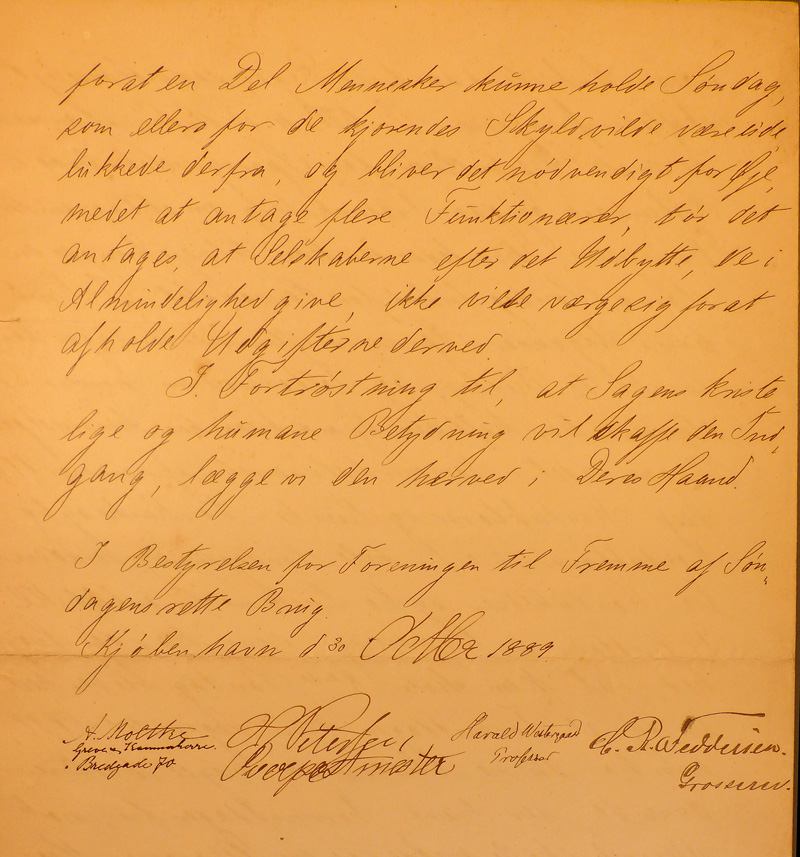 forat en Del Mennesker kunne holde Søndag,
som ellers for de kjørendes Skyld vilde være ude,
lukkede derfra, og bliver det nødvendigt for Øje,
medet at antage flere Funktionærer, tør det
antages, at Selskaberne efter det Udbytte, de i
Almindelighed give, ikke ville værge sig forat
afholde Udgifterne derved.
I Fortrøstning til, at Sagens kriste
lige og humane Betydning vil skaffe den Ind„
gang, lægge vi den herved i Deres Haand.
I Bestyrelsen for Foreningen til Fremme af Søn„
dagens rette Brug.
Kjøbenhavn d. 30 Octbr 1889.
A. Moltke
Greve, Kammerherre.
Bredgade 70
H. Petersen,
Overpostmester
Harald Westergaard
Professor
C. R. Feddersen.
Grosserer.